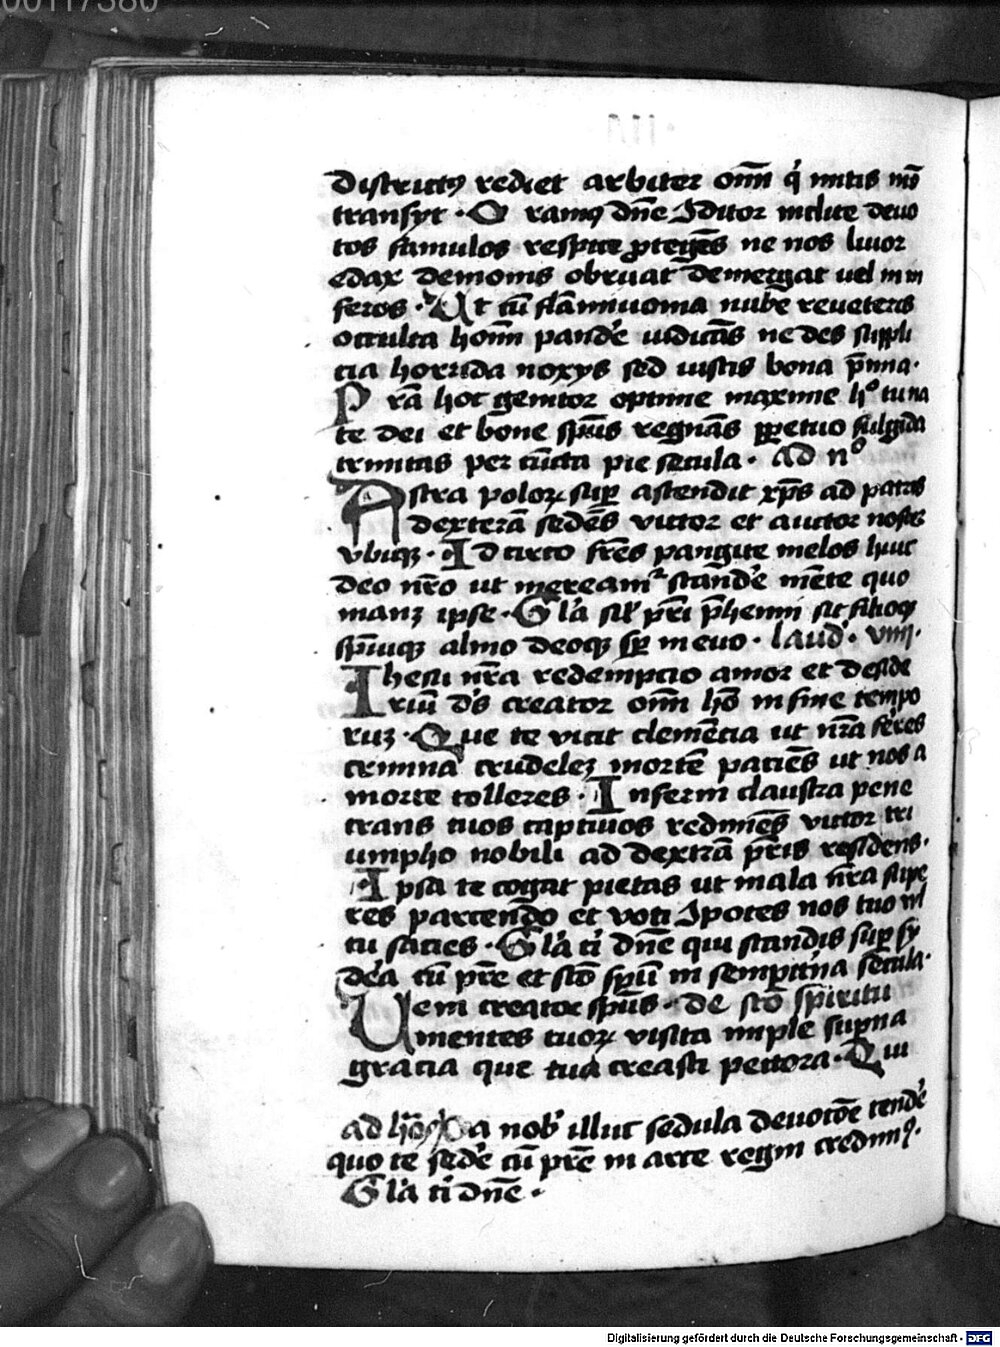 00117380
VII
districtus rediet arbiter om̅ qͥ mitis ms̅
transijt · O ramꝰ dn̅e Iditor inclite deuo
tos famulos respice ꝓteges̅ ne nos liuor
edax demonis obruat demergat uel in in
feros · Ut cu̅ flammiuoma nube reuertens
occulta hom̅ pande͛ iudica̅s ne des suppli
cia horrida noxijs sed iustis bona p̅mia ·
P ra̅ hoc genitor optime maxime hͦ tu na
te dei et bone sp̅us regna̅s ꝑpetuo fulgida
trinitas per cu̅cta pie secula · ad nͦ
Astra poloꝝ suꝑ ascendit xp̅s ad patris
dextera̅ sede̅s victor et auctor noster
vbiqꝫ · Id circo fr̅es pangite melos huic
deo nr̅o ut mereamᷣ stand͛e me̅te quo
manꝫ ipse · Gl̅a sil̕ pr̅i p̅henni sit filioqꝫ
sp̅uiqꝫ almo deoqꝫ sꝑ in euo · laud̕ · viiij ·
Ihesu nr̅a redempcio amor et deside
riu̅ d̕s creator om̅ ho̅ in fine tempo
ruꝫ · Que te vicit cleme̅cia ut nr̅a fer͛es
crimina crudeleꝫ morte̅ pacie̅s ut nos a
morte tolleres · Inferni claustra pene
trans tuos captiuos redime̅s victor tri
umpho nobili ad dextra̅ pr̅is residens ·
Ipsa te cogat pietas ut mala nr̅a supe
res parcendo et voti Ipotes nos tuo vl
tu sacies · Gl̅a ti̕ dn̅e qui scandis suꝑ sy
d͛ea cu̅ pr̅e et sc̅o sp̅u in sempit͛na secula ·
Ueni creator sp̅us · de sc̅o spiritu
mentes tuoꝝ visita imple suꝑna
gracia que tua creasti pectora · Qui
ad ho̅s Da nob̕ illuc sedula deuoco̅e tend͛e
quo te sed͛e cu̅ pr̅e in arce regni credimꝰ ·
Gl̅a ti̕ dn̅e ·
Digitalisierung gefördert durch die Deutsche Forschungsgemeinschaft - DFG